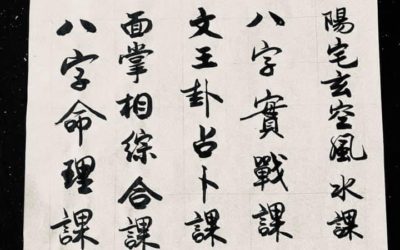 陽宅玄空風水課
八字實戰課
文王卦占卜課
面掌相綜合課
八字命理課